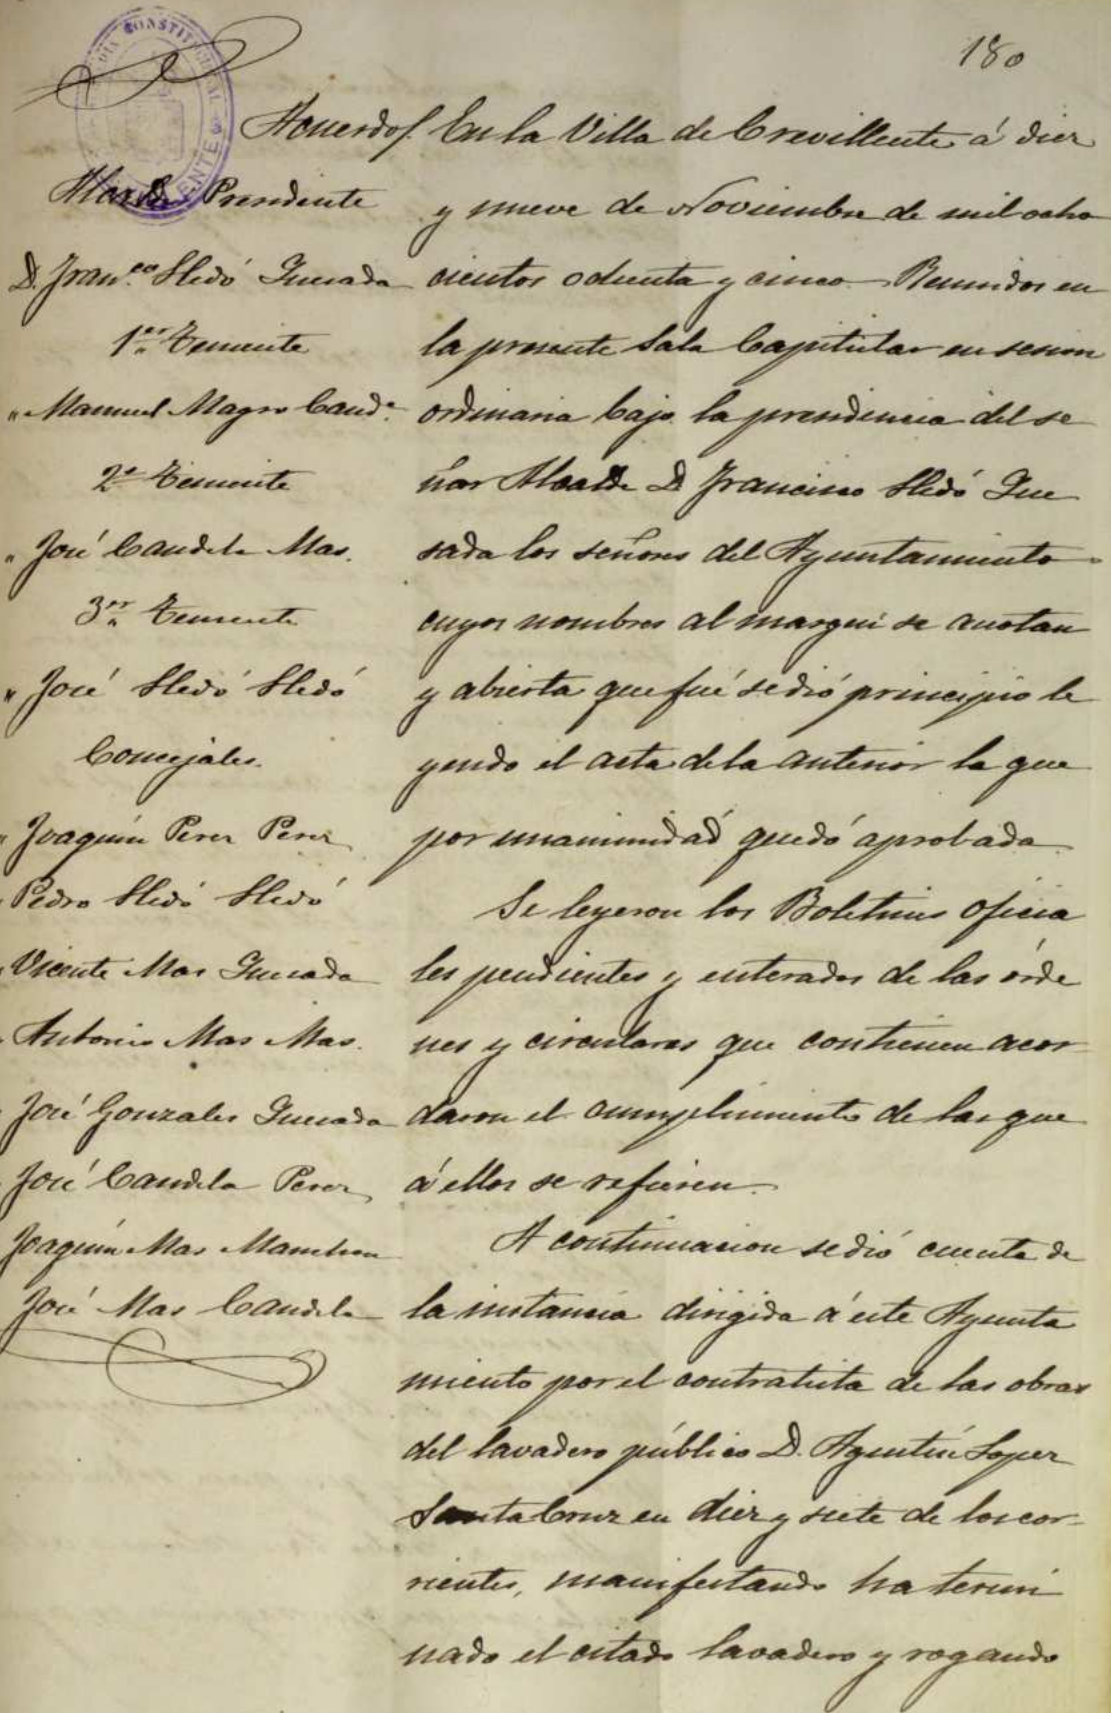 180
Acuerdo/ En la Villa de Crevillente á diez
Alcalde Presidente
D. Fran.co Lledó Quesada
1.er Teniente
" Manuel Magro Cand.a
2.o Teniente
" José Candela Mas.
3.er Teniente
" José Lledó Lledó
Concejales.
" Joaquin Perez Perez
Pedro Lledó Lledó
Vicente Mas Quesada
Antonio Mas Mas.
José Gonzales Quesada
José Candela Perez
Joaquin Mas Manchon
José Mas Candela
y nueve de Noviembre de mil ocho
cientos ochenta y cinco Reunidos en
la presente Sala Capitular en sesion
ordinaria bajo la presidencia del se
ñor Alcalde D Francisco Lledó Que
sada los señores del Ayuntamiento
cuyos nombres al margen se anotan
y abierta que fué se dió principio le
yendo el acta de la anterior la que
por unanimidad quedó aprobada
Se leyeron los Boletines oficia
les pendientes y enterados de las órde
nes y circulares que contienen acor
daron el cumplimiento de las que
á ellos se refieren.
A continuacion se dió cuenta de
la instancia dirigida á este Ayunta
miento por el contratista de las obras
del lavadero público D. Agustin Lopez
Santa Cruz en diez y siete de los cor-
rientes, manifestando ha termi
nado el citado lavadero y rogando